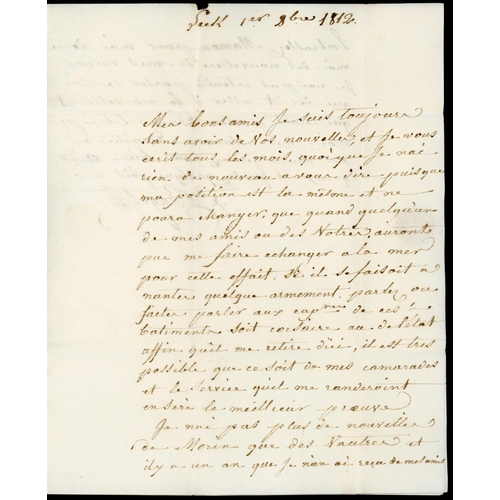 Leek 1er 8bre 1812.
Mes bons amis Je suis toujours
sans avoir de vos nouvelles, et Je vous
ecrit tous les mois, quoique Je nai
rien de nouveau a vous dire puisque
ma position est la même et ne
poura changer, que quand quelqu'un
de mes amis ou des Votres, auronte
pue me faire echanger a la mer
pour cette effait. Si il se faisoit a
nantes quelque armement, parlez ou
faites parler aux capnes de ces
batiments soit corsaire au de l'état
affin qu'il me retire d'ici, il est tres
possible que ce soit de mes camarades
et le service qu'il me randeroint
en sere le meillieur preuve
Je nai pas plus de nouvelles
de Morin que des Vautres et
il y a un an que Je n'an ai reçu de mes amis